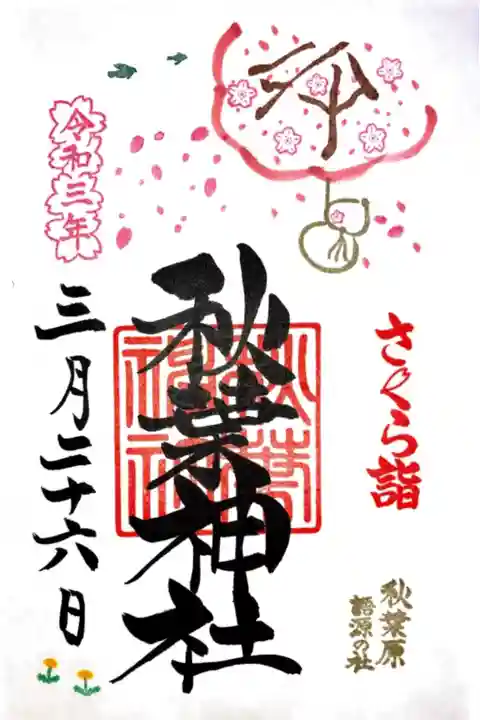 さくら詣
秋葉原
語源の社
秋葉神社
秋葉
神社
令和三年
三月二十六日